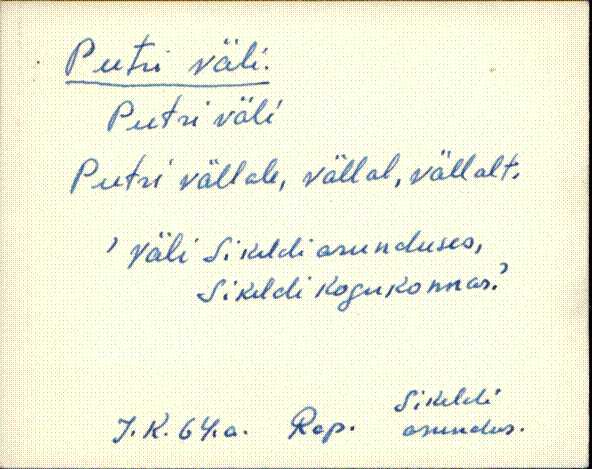 Peetri väli.
Peetri väli
Peetri vällale, vällal, vällalt.
' väli Sikeldi asunduses,
Sikeldi kogukonnas.'
J. K. 64. a. Rap. Sikeldi
asundus.